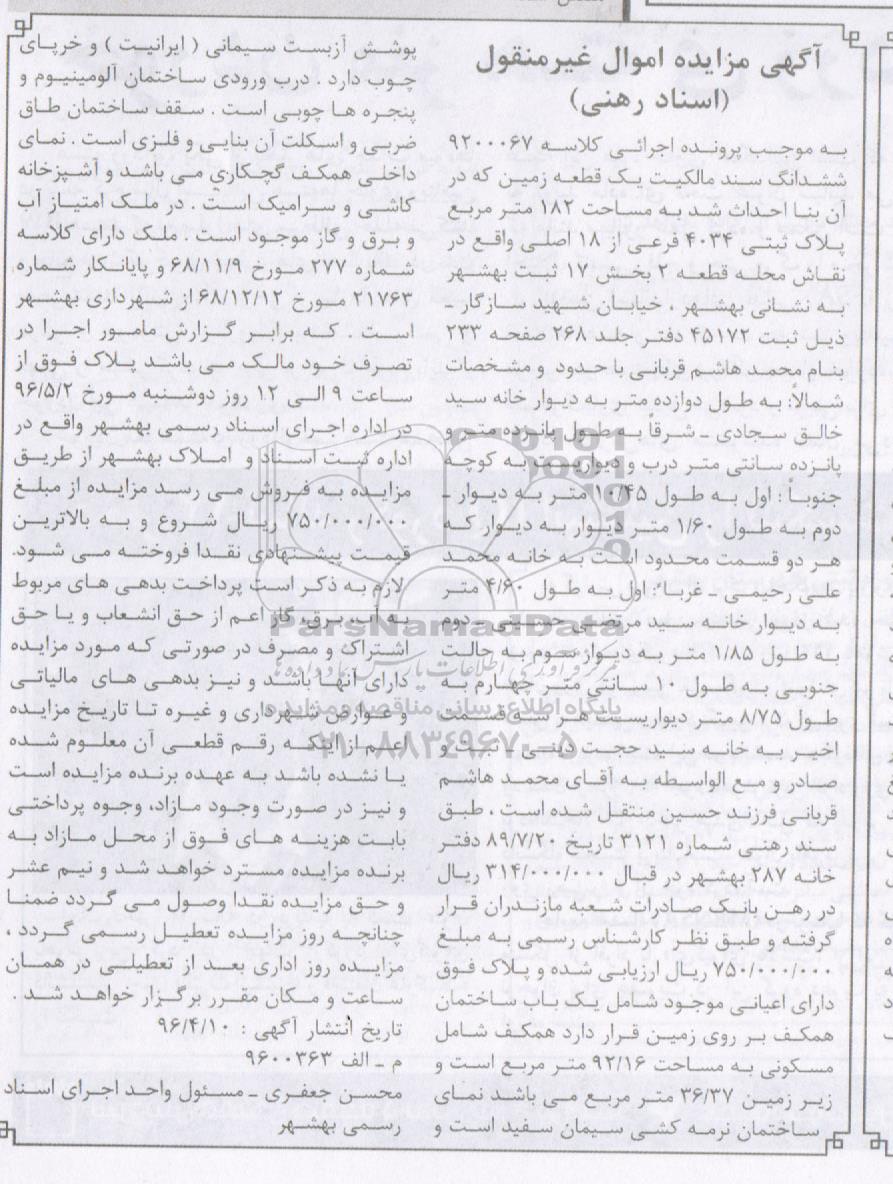 آگهی مزایده اموال غیرمنقول
(اسناد رهنی)
به موجب پرونده اجرائی کلاسه ۹۲۰۰۰۶۷
ششدانگ سند مالکیت یک قطعه زمین که در
آن بنا احداث شد به مساحت ۱۸۲ متر مربع
پلاک ثبتی ۴۰۳۴ فرعی از ۱۸ اصلی واقع در
نقاش محله قطعه ۲ بخش ۱۷ ثبت بهشهر
به نشانی بهشهر ، خیابان شهید سازگار ـ
ذیل ثبت ۴۵۱۷۲ دفتر جلد ۲۶۸ صفحه ۲۳۳
بنام محمد هاشم قربانی با حدود و مشخصات
شمالاً: به طول دوازده متر به دیوار خانه سید
خالق سجادی ـ شرقاً به طول پانزده متر و
پانزده سانتی متر درب و دیواریست به کوچه
جنوباً : اول به طول ۱۰/۴۵ متر به دیوار ـ
دوم به طول ۱/۶۰ متر دیوار به دیوار که
هر دو قسمت محدود است به خانه محمد
علی رحیمی ـ غرباً : اول به طول ۴/۶۰ متر
به دیوار خانه سید مرتضی حسینی ـ دوم
به طول ۱/۸۵ متر به دیوار سوم به حالت
جنوبی به طول ۱۰ سانتی متر چهارم به
طول ۸/۷۵ متر دیواریست هر سه قسمت
اخیر به خانه سید حجت دینی ـ ثبت و
صادر و مع الواسطه به آقای محمد هاشم
قربانی فرزند حسین منتقل شده است ، طبق
سند رهنی شماره ۳۱۲۱ تاریخ ۸۹/۷/۲۰ دفتر
خانه ۲۸۷ بهشهر در قبال ۳۱۴/۰۰۰/۰۰۰ ریال
در رهن بانک صادرات شعبه مازندران قرار
گرفته و طبق نظر کارشناس رسمی به مبلغ
۷۵۰/۰۰۰/۰۰۰ ریال ارزیابی شده و پلاک فوق
دارای اعیانی موجود شامل یک باب ساختمان
همکف بر روی زمین قرار دارد همکف شامل
مسکونی به مساحت ۹۲/۱۶ متر مربع است و
زیر زمین ۳۶/۳۷ متر مربع می باشد نمای
ساختمان نرمه کشی سیمان سفید است و
پوشش آزبست سیمانی ( ایرانیت ) و خرپای
چوب دارد . درب ورودی ساختمان آلومینیوم و
پنجره ها چوبی است . سقف ساختمان طاق
ضربی و اسکلت آن بنایی و فلزی است . نمای
داخلی همکف گچکاری می باشد و آشپزخانه
کاشی و سرامیک است . در ملک امتیاز آب
و برق و گاز موجود است . ملک دارای کلاسه
شماره ۲۷۷ مورخ ۶۸/۱۱/۹ و پایانکار شماره
۲۱۷۶۳ مورخ ۶۸/۱۲/۱۲ از شهرداری بهشهر
است . که برابر گزارش مامور اجرا در
تصرف خود مالک می باشد پلاک فوق از
ساعت ۹ الی ۱۲ روز دوشنبه مورخ ۹۶/۵/۲
در اداره اجرای اسناد رسمی بهشهر واقع در
اداره ثبت اسناد و املاک بهشهر از طریق
مزایده به فروش می رسد مزایده از مبلغ
۷۵۰/۰۰۰/۰۰۰ ریال شروع و به بالاترین
قیمت پیشنهادی نقدا فروخته می شود.
لازم به ذکر است پرداخت بدهی های مربوط
به آب، برق، گاز اعم از حق انشعاب و یا حق
اشتراک و مصرف در صورتی که مورد مزایده
دارای آنها باشد و نیز بدهی های مالیاتی
و عوارض شهرداری و غیره تا تاریخ مزایده
اعم از اینکه رقم قطعی آن معلوم شده
یا نشده باشد به عهده برنده مزایده است
و نیز در صورت وجود مازاد، وجوه پرداختی
بابت هزینه های فوق از محل مازاد به
برنده مزایده مسترد خواهد شد و نیم عشر
و حق مزایده نقدا وصول می گردد ضمنا
چنانچه روز مزایده تعطیل رسمی گردد ،
مزایده روز اداری بعد از تعطیلی در همان
ساعت و مکان مقرر برگزار خواهد شد .
تاریخ انتشار آگهی : ۹۶/۴/۱۰
م ـ الف ۹۶۰۰۳۶۳
محسن جعفری ـ مسئول واحد اجرای اسناد
رسمی بهشهر
ParsNamadData
پایگاه اطلاع رسانی مناقصه و مزایده
۰۲۱-۸۸۳۴۹۶۷۰-۵